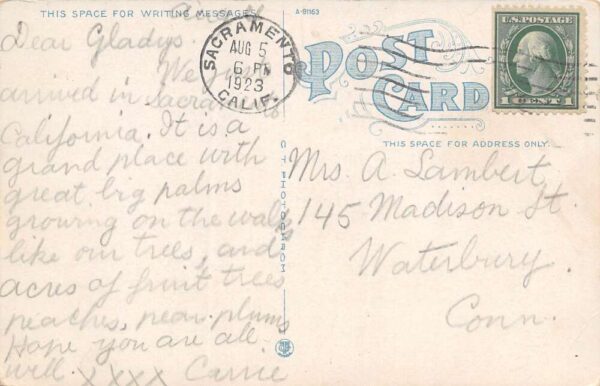 THIS SPACE FOR WRITING MESSAGES
A-91163
POST CARD
THIS SPACE FOR ADDRESS ONLY.
SACRAMENTO
AUG 5
6 PM
1923
CALIF.
U.S. POSTAGE
1 CENT 1
C.T. PHOTOCHROM
Dear Gladys,
We
arrived in Sacramento
California. It is a
grand place with
great big palms
growing on the walks
like our trees, and
acres of fruit trees
peaches, pear, plums
Hope you are all
well. xxxx Carrie
Mrs. A. Lambert,
145 Madison St.
Waterbury.
Conn.